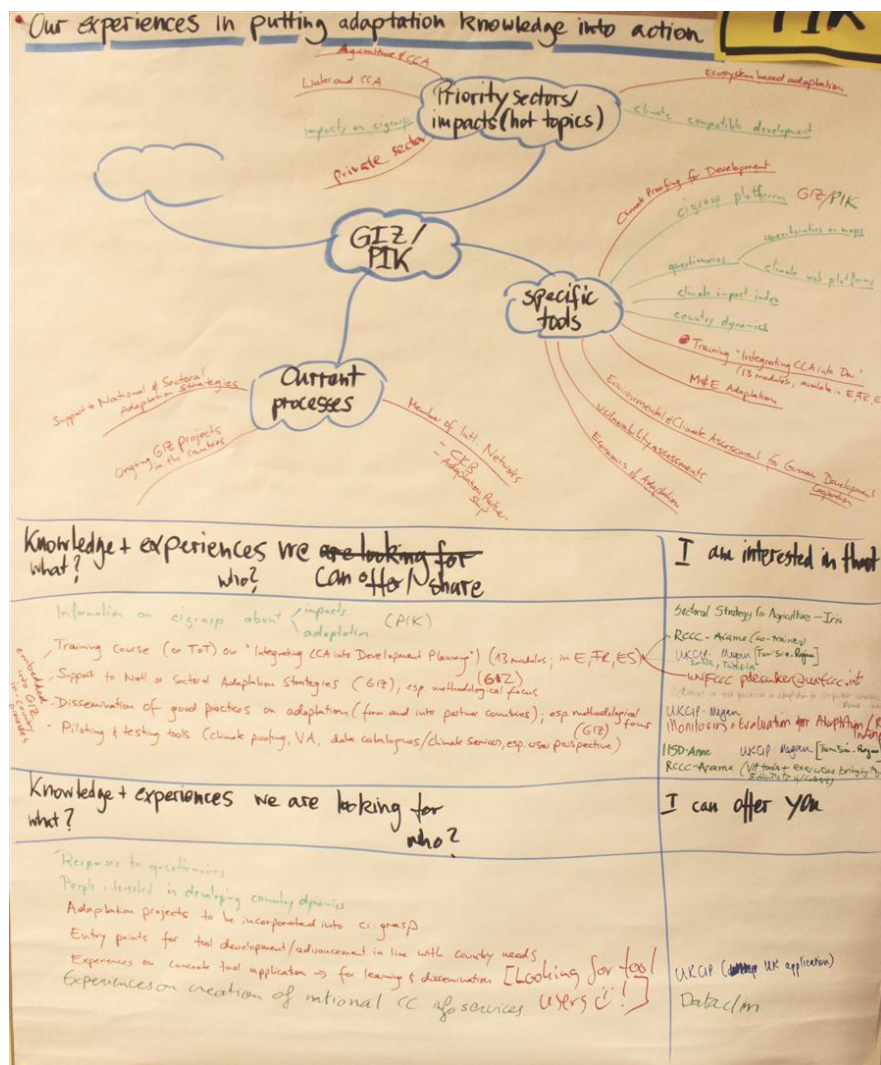 Our experiences in putting adaptation knowledge into action
PIK
Agriculture & CCA
Water and CCA
impacts on cigrasp
private sector
Priority sectors/
impacts (hot topics)
Ecosystem based adaptation
climate compatible development
GIZ/
PIK
Climate Proofing for Development
cigrasp platform GIZ/PIK
questionnaires
on maps
climate web platforms
climate impact index
country dynamics
specific
tools
Training "Integrating CCA into Dev."
(13 modules, available in E, FR, E
M&E Adaptation
Environmental & Climate Assessment for German Development
Cooperation
Vulnerability assessments
Economics of Adaptation
Current
processes
Support to National & Sectoral
Adaptation Strategies
Ongoing GIZ projects
in the countries
Member of Intl. Networks
- CKB
- Adaptation Partner-
ship
Knowledge + experiences we are looking for
what? who? can offer/share
I am interested in that
Information on cigrasp about impacts (PIK)
adaptation
embedded
into GIZ
in-country
processes
Training course (or ToT) on "Integrating CCA into Development Planning") (13 modules; in E, FR, ES)
(GIZ)
Support to Natl or Sectoral Adaptation Strategies (GIZ); esp. methodological focus
Dissemination of good practices on adaptation (from and into partner countries); esp. methodological
(GIZ) focus
Piloting & testing tools (climate proofing, VA, data catalogues/climate services, esp. user perspective)
Sectoral Strategy for Agriculture - Iris
RCCC - Arame (co-trainers)
UKCIP - Megan [Tunisia - Region]
UNFCCC pdesanker@unfccc.int
UKCIP - Megan
Monitoring & Evaluation for Adaptation
IISD - Anne UKCIP - Megan [Tunisia - Region]
RCCC - Arame (VA tools + bringing
Knowledge + experiences we are looking for
what? who?
I can offer you
Responses to questionnaires
People interested in developing country dynamics
Adaptation projects to be incorporated into ci:grasp
Entry points for tool development/advancement in line with country needs
Experiences on concrete tool application → for learning & dissemination [Looking for tool
users!]
Experiences on creation of national CC info services.
UKCIP UK application)
Dataclim